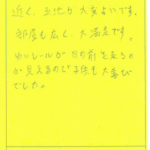 近く、立地が大変よいです。
部屋も広く、大満足です。
モノレールが目の前を走るの
が見えるので子供も大喜び
でした。